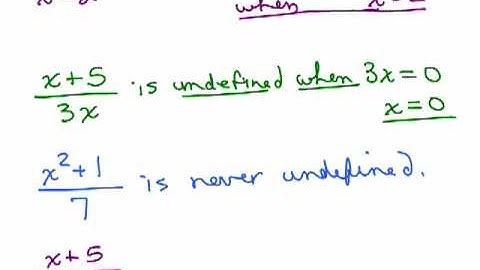 when
x+5
── is undefined when 3x = 0
3x
x = 0
x²+1
── is never undefined.
7
x+5